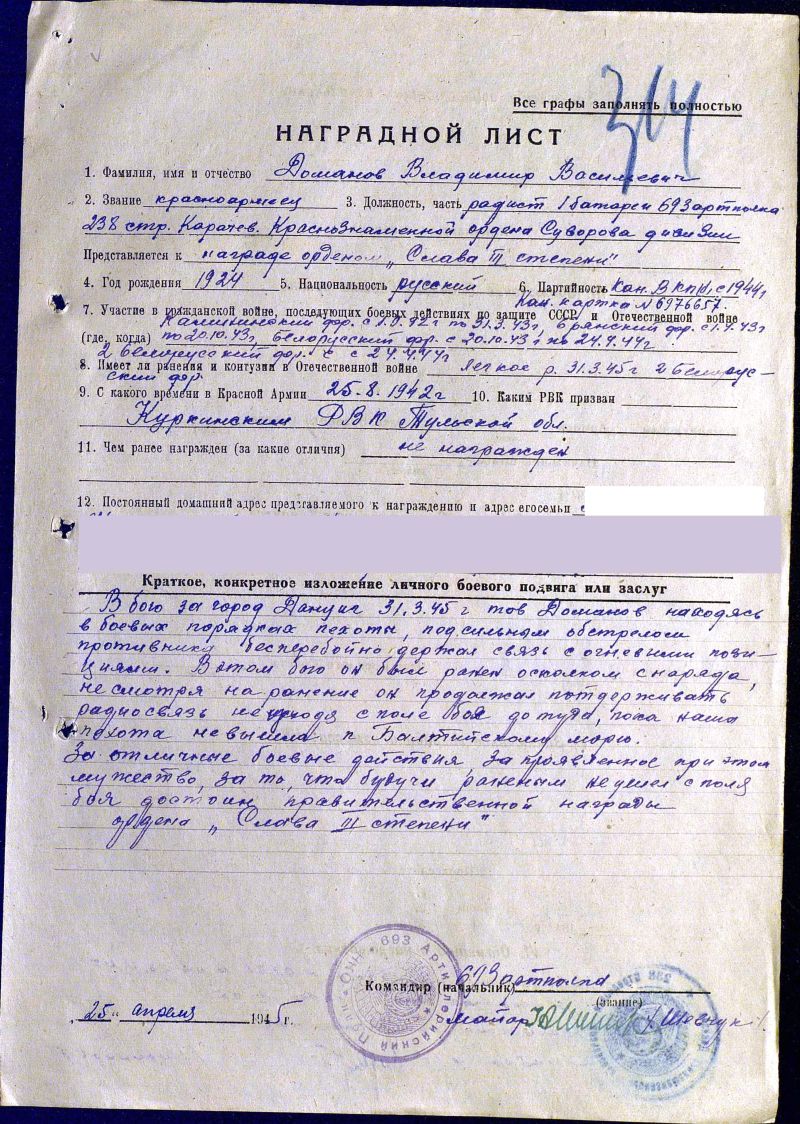 314
Все графы заполнять полностью
НАГРАДНОЙ ЛИСТ
1. Фамилия, имя и отчество Доманов Владимир Васильевич
2. Звание красноармеец 3. Должность, часть радист 1 батареи 693 артполка
238 стр. Карачев. Краснознаменной ордена Суворова дивизии
Представляется к награде орденом „Слава III степени"
4. Год рождения 1924 5. Национальность русский 6. Партийность Кан. ВКП(б) с 1944 г
Кан. картка № 6976657.
7. Участие в гражданской войне, последующих боевых действиях по защите СССР и Отечественной войне
Калининский фр. с 1.9.42г по 31.3.43г, Брянский фр. с 1.4.43г
(где, когда) по 20.10.43г, Белорусский фр. с 20.10.43 г по 24.4.44г.
2 Белорусский фр. с 24.4.44г
8. Имеет ли ранения и контузии в Отечественной войне легкое р. 31.3.45г 2 Белорус-
ский фр.
9. С какого времени в Красной Армии 25.8.1942г 10. Каким РВК призван
Куркинским РВК Тульской обл.
11. Чем ранее награжден (за какие отличия) не награжден
12. Постоянный домашний адрес представляемого к награждению и адрес его семьи
Краткое, конкретное изложение личного боевого подвига или заслуг
В бою за город Данциг 31.3.45 г тов Доманов находясь
в боевых порядках пехоты, под сильным обстрелом
противника бесперебойно держал связь с огневыми пози-
циями. В этом бою он был ранен осколком снаряда,
несмотря на ранение он продолжал потдерживать
радиосвязь не уходя с поле боя до туда, пока наша
пехота не вышла к Балтийскому морю.
За отличные боевые действия за проявленное при этом
мужество, за то, что будучи раненым не ушел с поля
боя достоин правительственной награды
ордена „Слава III степени"
693 Артиллерийский Полк
Командир (начальник) 693 артполка
(звание)
„25" апреля 1945г.
майор /Шевчук/.